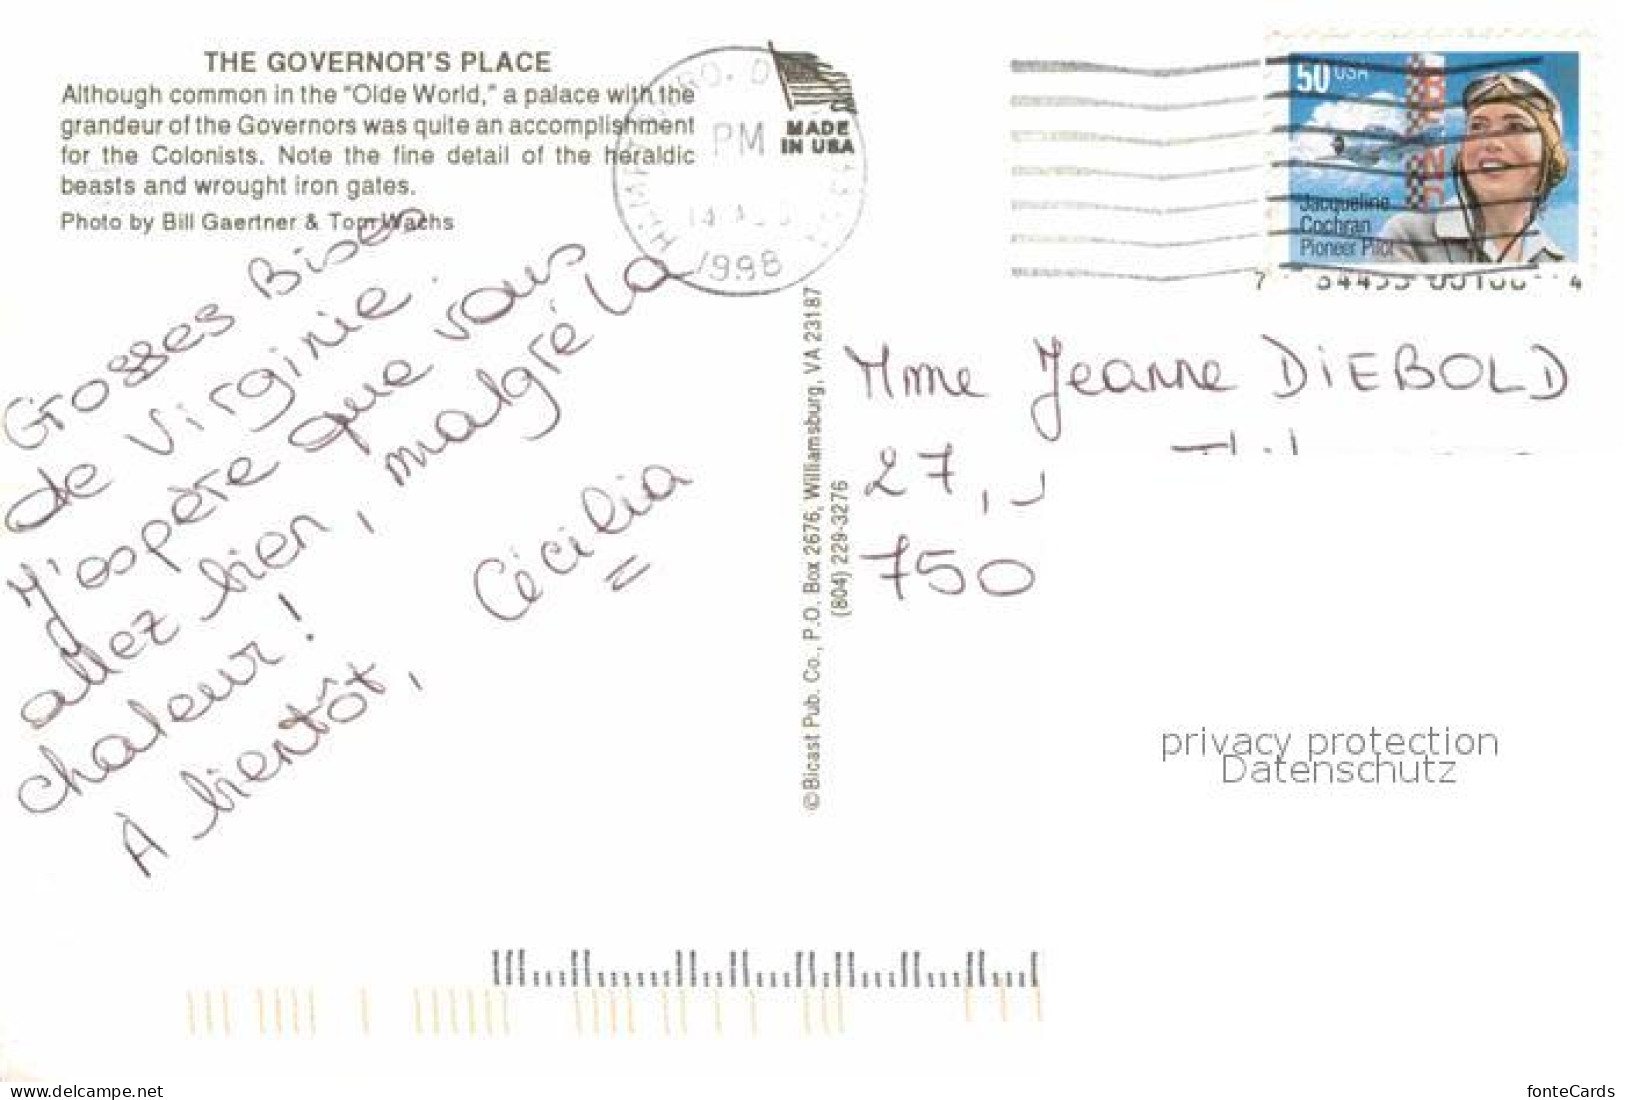 THE GOVERNOR'S PLACE
Although common in the "Olde World," a palace with the
grandeur of the Governors was quite an accomplishment
for the Colonists. Note the fine detail of the heraldic
beasts and wrought iron gates.
Photo by Bill Gaertner & Tom Wachs
MADE
IN USA
PM
1998
50 USA
Jacqueline
Cochran
Pioneer Pilot
Grosses Bises
de Virginie.
J'espère que vous
allez bien, malgré la
chaleur!
À bientôt,
Cécilia
©Bicast Pub. Co., P.O. Box 2676, Williamsburg, VA 23187
(804) 229-3276
Mme Jeanne DIEBOLD
27,
750
privacy protection
Datenschutz
www.delcampe.net
fonteCards